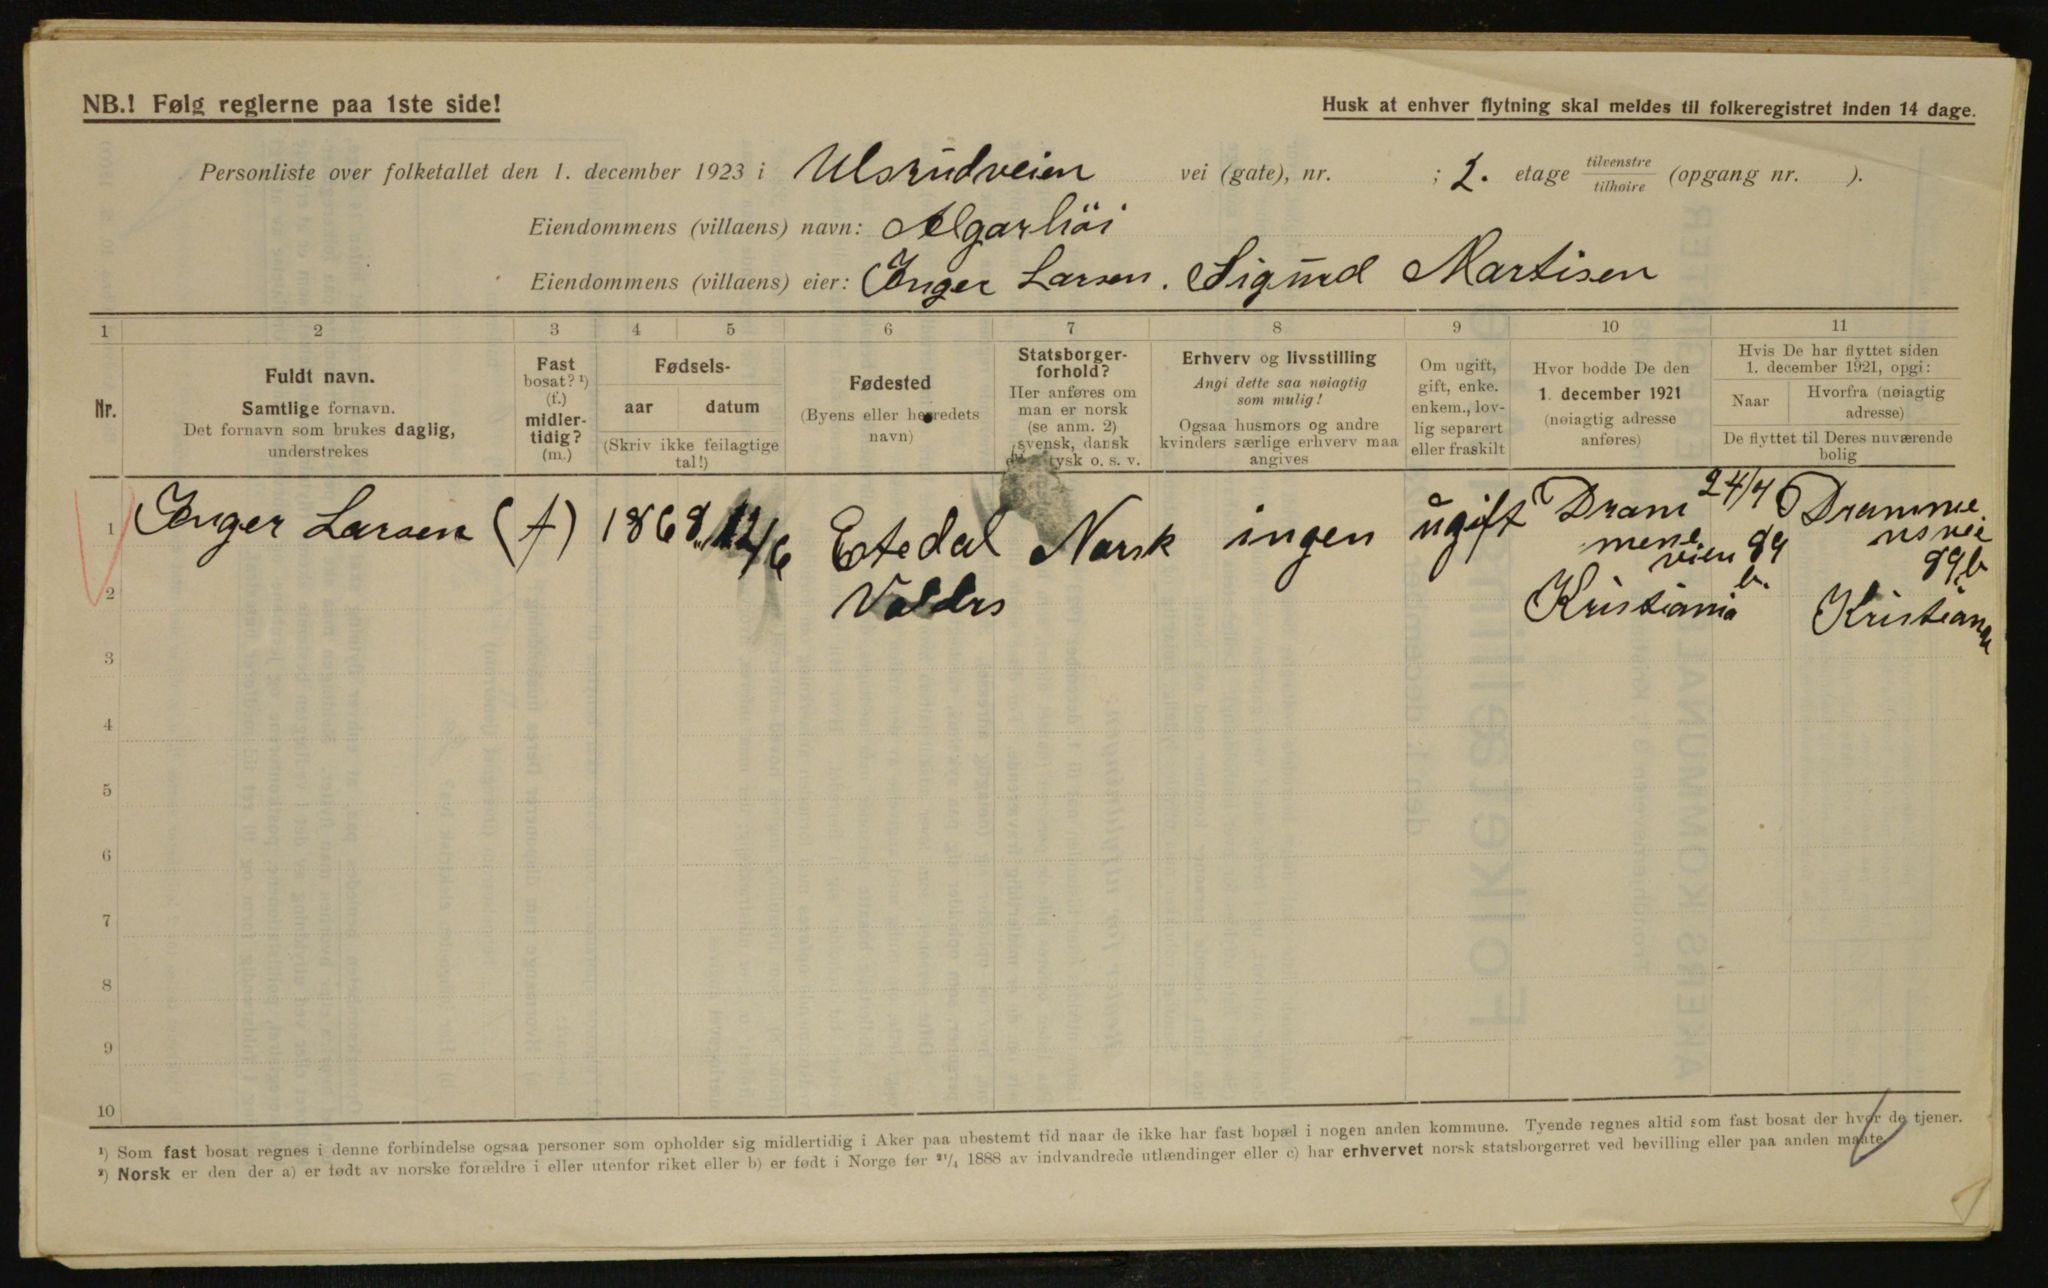 NB.! Følg reglerne paa 1ste side!
Husk at enhver flytning skal meldes til folkeregistret inden 14 dage.
Personliste over folketallet den 1. december 1923 i Ulsrudveien vei (gate), nr. ; 2. etage tilvenstre/tilhøire (opgang nr. ).
Eiendommens (villaens) navn: Algarhöi
Eiendommens (villaens) eier: Inger Larsen. Sigurd Martisen
1 2 3 4 5 6 7 8 9 10 11
Nr.
Fuldt navn.
Samtlige fornavn.
Det fornavn som brukes daglig,
understrekes
Fast
bosat? ¹)
(f.)
midler-
tidig?
(m.)
Fødsels-
aar datum
(Skriv ikke feilagtige
tal!)
Fødested
(Byens eller herredets
navn)
Statsborger-
forhold?
Her anføres om
man er norsk
(se anm. 2)
svensk, dansk
tysk o. s. v.
Erhverv og livsstilling
Angi dette saa nøiagtig
som mulig!
Ogsaa husmors og andre
kvinders særlige erhverv maa
angives
Om ugift,
gift, enke.
enkem., lov-
lig separert
eller fraskilt
Hvor bodde De den
1. december 1921
(nøiagtig adresse
anføres)
Hvis De har flyttet siden
1. december 1921, opgi:
Naar
Hvorfra (nøiagtig
adresse)
De flyttet til Deres nuværende
bolig
1 Inger Larsen (f) 1868 12/6 Norsk ingen ugift Dram 24/7 Dramme
Etnedal mens nsvei
veien 89 89 b
2 Valdrs Kristiania b. Kristiania
3
4
5
6
7
8
9
10
¹) Som fast bosat regnes i denne forbindelse ogsaa personer som opholder sig midlertidig i Aker paa ubestemt tid naar de ikke har fast bopæl i nogen anden kommune. Tyende regnes altid som fast bosat der hvor de tjener.
²) Norsk er den der a) er født av norske forældre i eller utenfor riket eller b) er født i Norge før 21/4 1888 av indvandrede utlændinger eller c) har erhvervet norsk statsborgerret ved bevilling eller paa anden maate.